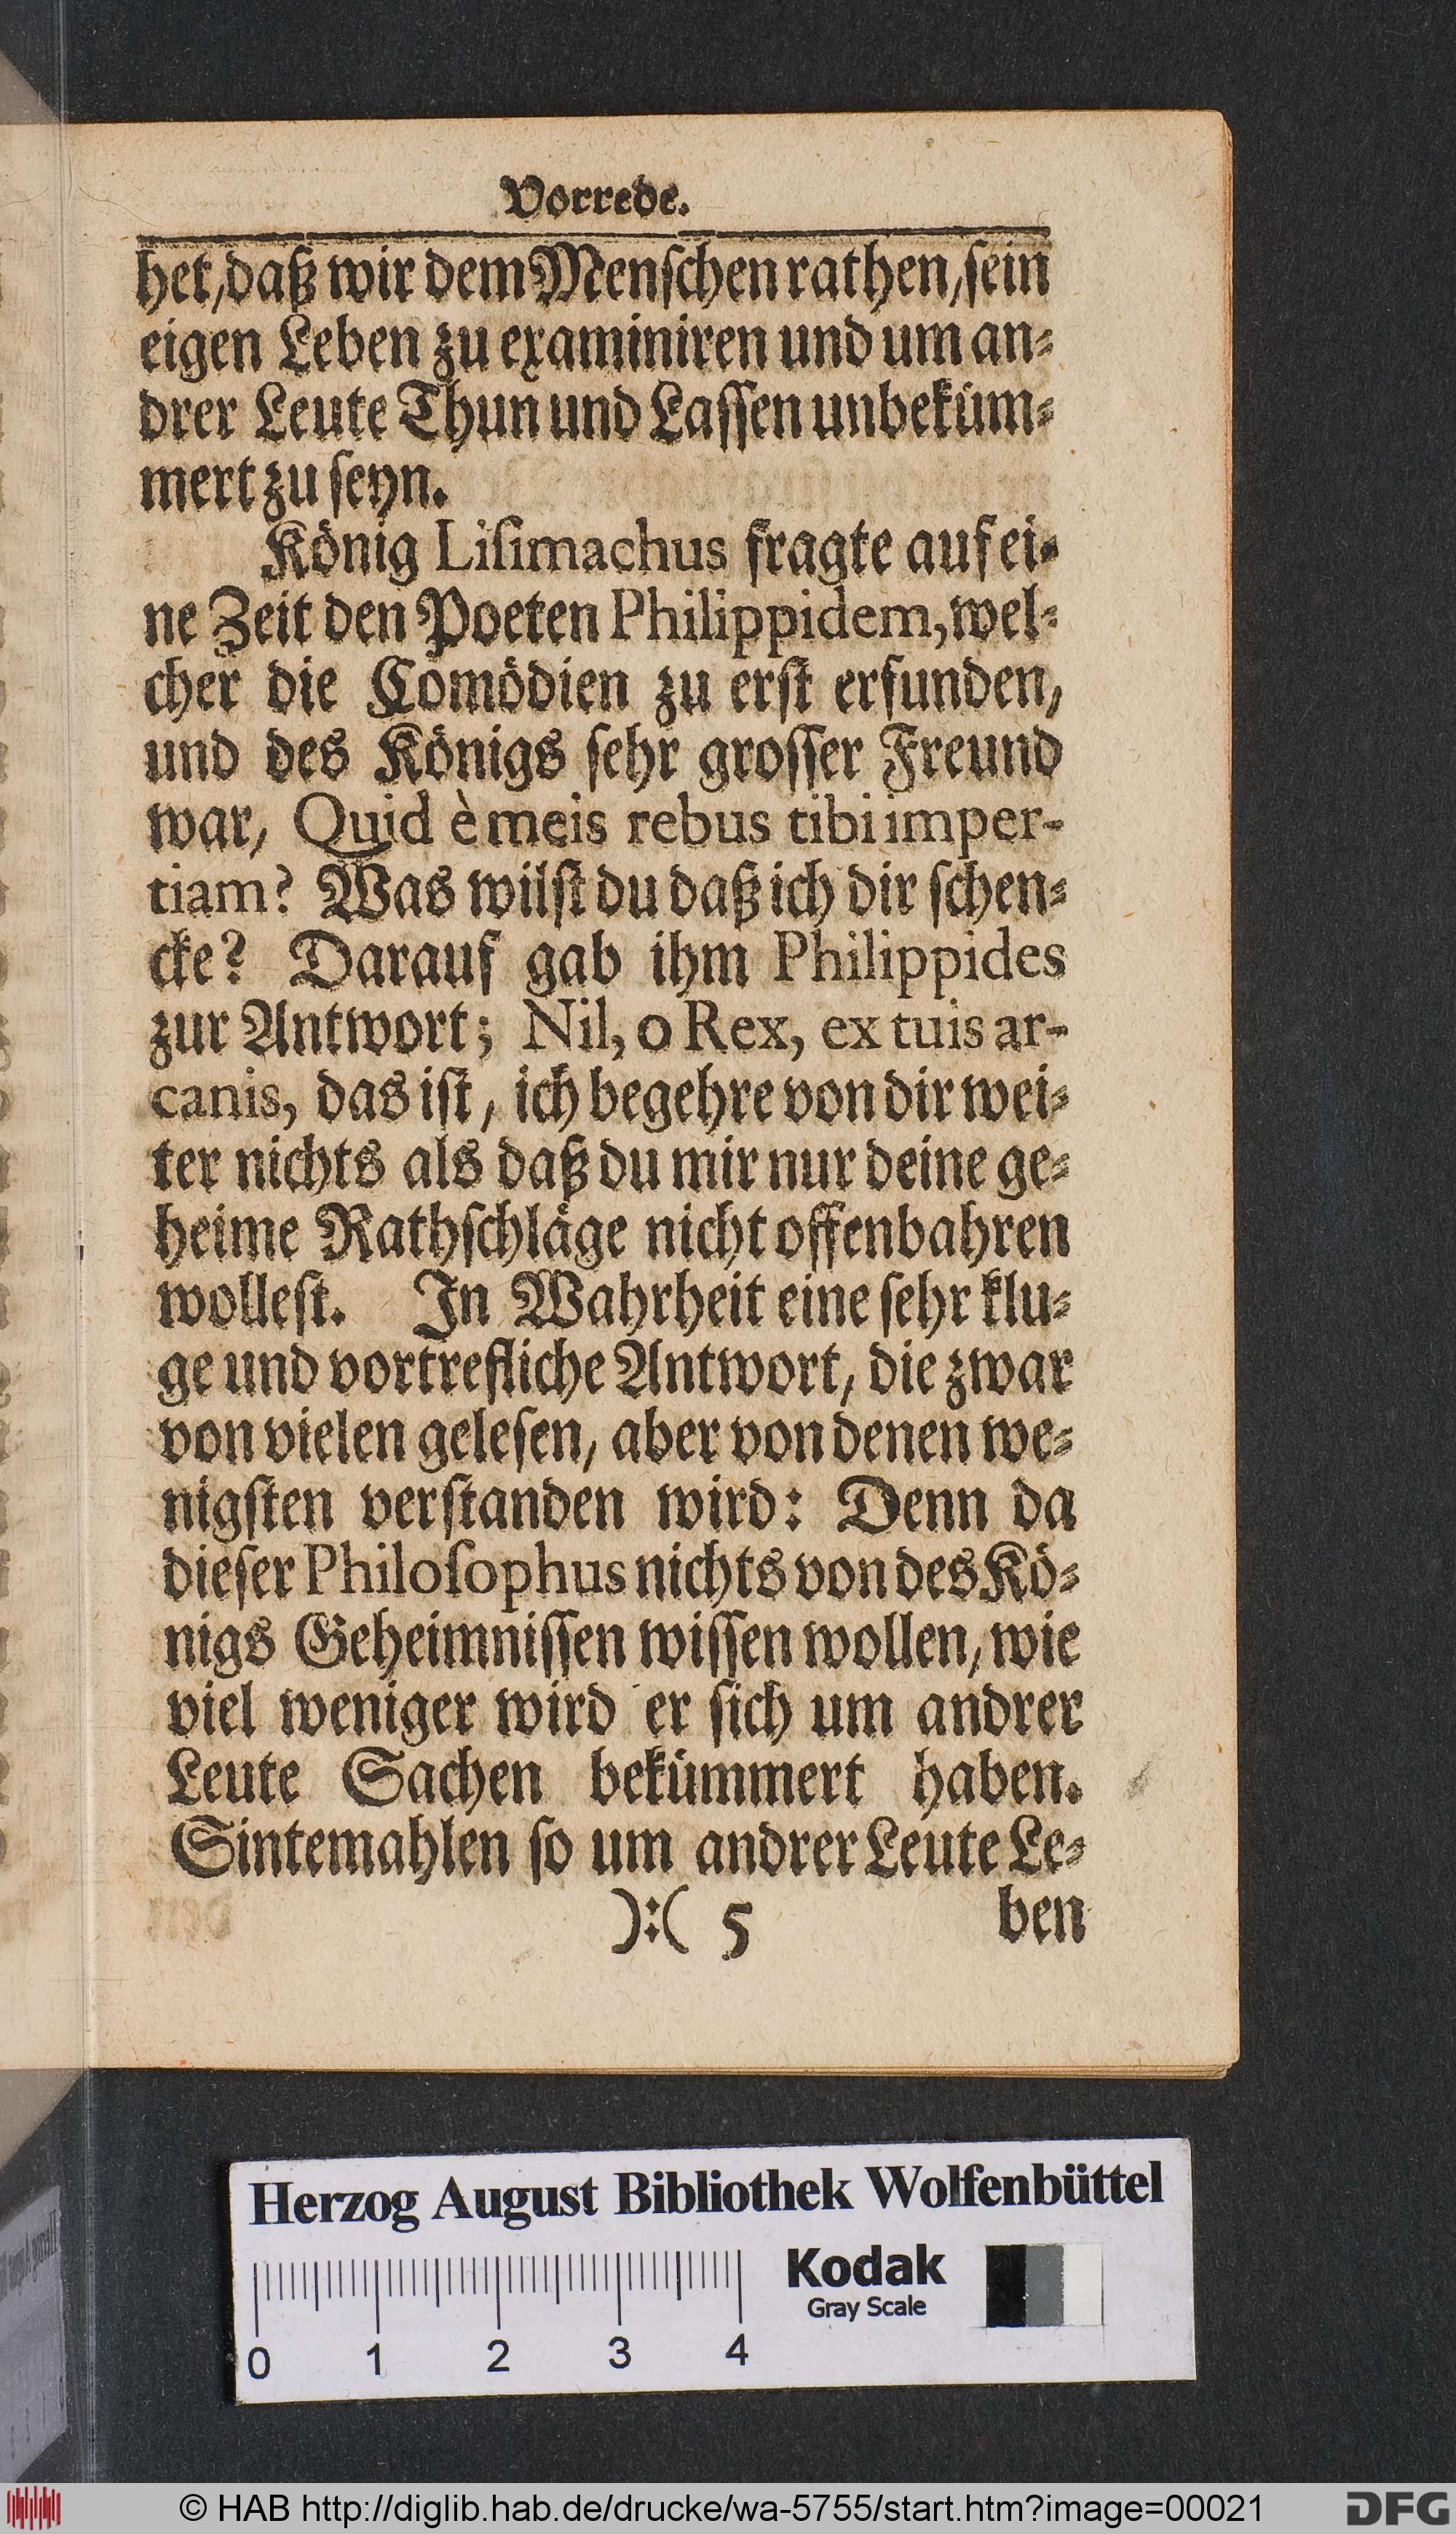 Vorrede.
het/ daß wir dem Menſchen rathen/ ſein
eigen Leben zu examiniren und um an⸗
drer Leute Thun und Laſſen unbeküm⸗
mert zu ſeyn.
König Liſimachus fragte auf ei⸗
ne Zeit den Poeten Philippidem, wel⸗
cher die Comödien zu erſt erfunden/
und des Königs ſehr groſſer Freund
war/ Quid è meis rebus tibi imper-
tiam? Was wilſt du daß ich dir ſchen⸗
cke? Darauf gab ihm Philippides
zur Antwort; Nil, o Rex, ex tuis ar-
canis, das iſt/ ich begehre von dir wei⸗
ter nichts als daß du mir nur deine ge⸗
heime Rathſchläge nicht offenbahren
wolleſt. In Wahrheit eine ſehr klu⸗
ge und vortrefliche Antwort/ die zwar
von vielen geleſen/ aber von denen we⸗
nigſten verſtanden wird: Denn da
dieſer Philoſophus nichts von des Kö⸗
nigs Geheimniſſen wiſſen wollen/ wie
viel weniger wird er ſich um andrer
Leute Sachen bekümmert haben.
Sintemahlen ſo um andrer Leute Le⸗
):( 5 ben
Herzog August Bibliothek Wolfenbüttel
Kodak
Gray Scale
0 1 2 3 4
© HAB http://diglib.hab.de/drucke/wa-5755/start.htm?image=00021
DFG